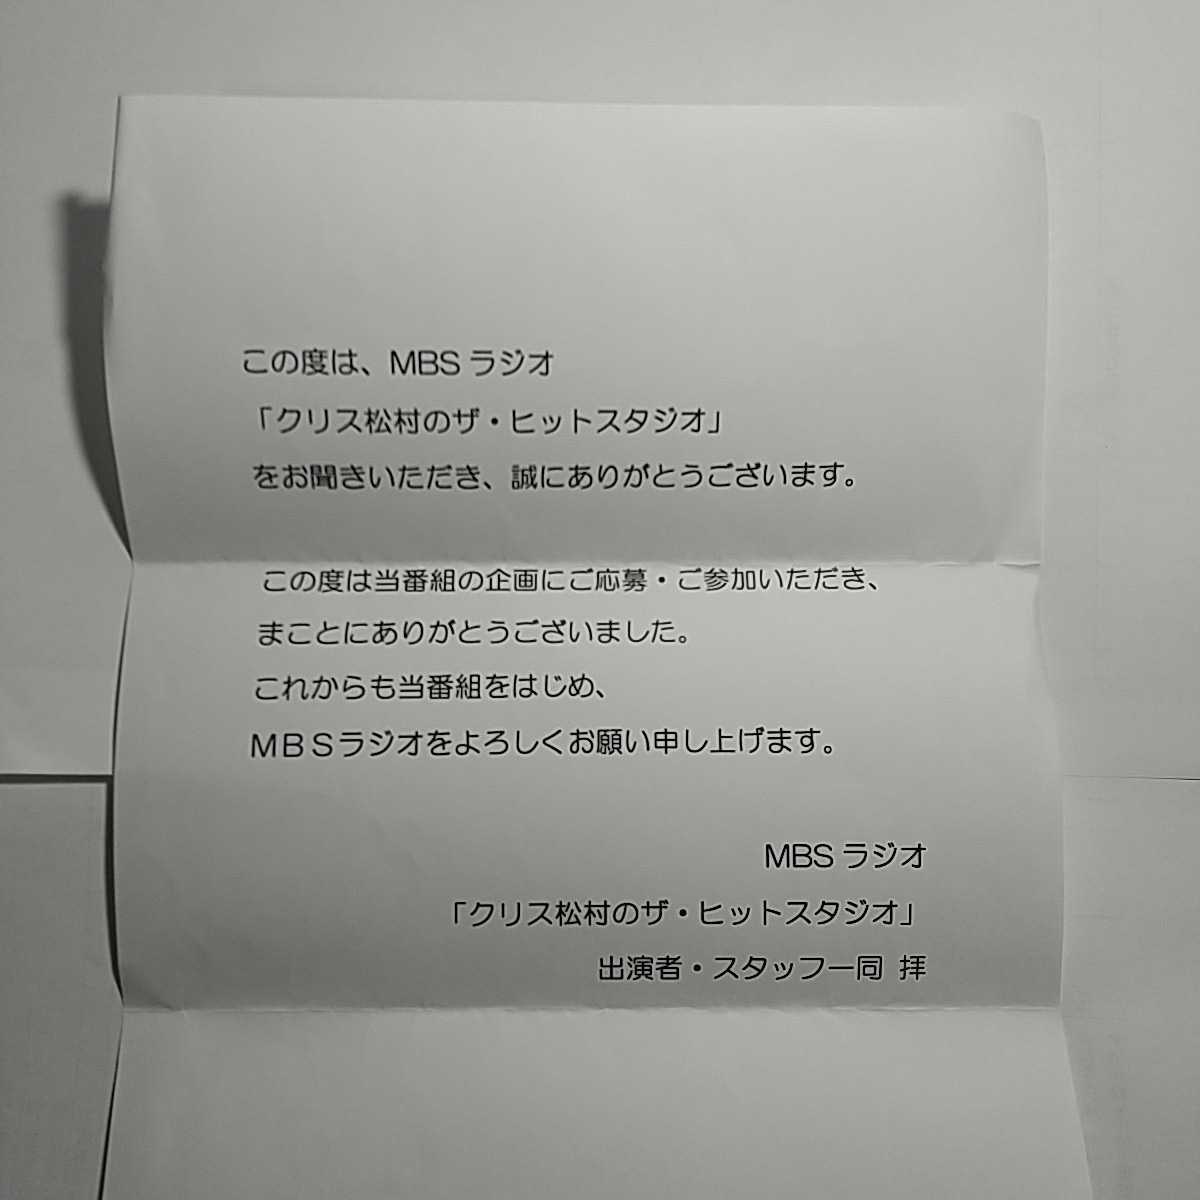 この度は、MBS ラジオ
「クリス松村のザ・ヒットスタジオ」
をお聞きいただき、誠にありがとうございます。
この度は当番組の企画にご応募・ご参加いただき、
まことにありがとうございました。
これからも当番組をはじめ、
ＭＢＳラジオをよろしくお願い申し上げます。
MBS ラジオ
「クリス松村のザ・ヒットスタジオ」
出演者・スタッフ一同 拝